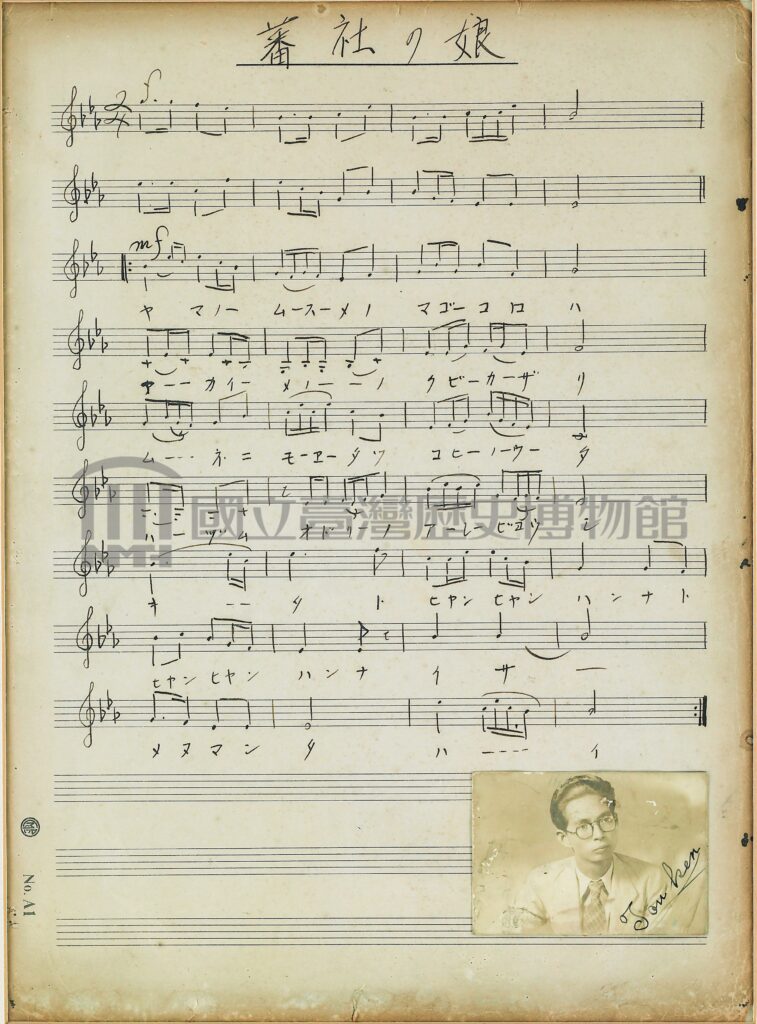 蕃社の娘
f
mf
ヤ マノー ムースーメノ マゴーコロ ハ
ヤーー カイー メノーーノ クビーカーザ リ
ムーーー ネニ モーヱータツ コヒーノーウー タ
國立臺灣歷史博物館
NMTH
オ ーー タ ト ヒヤン ヒヤン ハンナト
ヒヤン ヒヤン ハンナ イ サ ー
メヌマン タ ハ ーーーー イ
Tou ken
No. A1